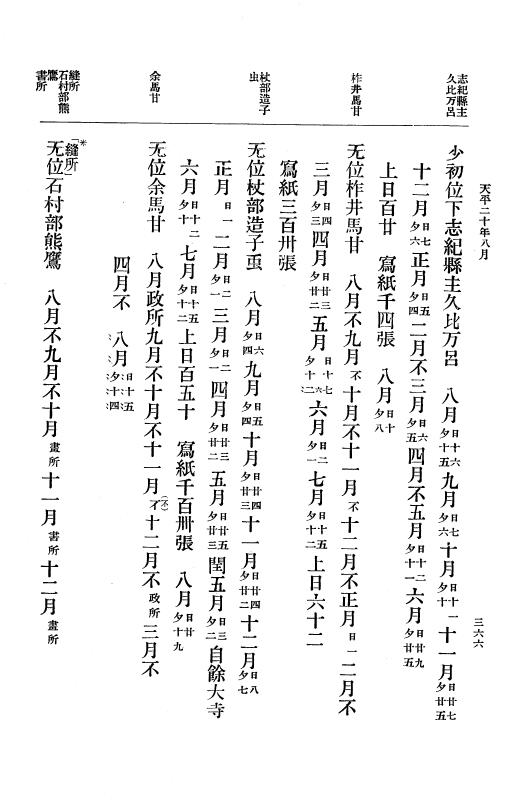 天平二十年八月
三六六
志紀縣主
久比万呂
少初位下志紀縣主久比万呂 八月日十六夕十五九月日七夕六十月日十一夕十十一月日廿七夕廿五
十二月日七夕六正月日五夕四二月不三月日六夕五四月不五月日十二夕十一六月日廿九夕廿五
上日百廿 寫紙千四張 八月日十夕八
柞井馬甘
无位柞井馬甘 八月不九月不十月不十一月不十二月不正月日一二月不
三月日四夕三四月日廿三夕廿二五月日十七夕十六六月日二夕一七月日十五夕十二上日六十二
寫紙三百卅張
杖部造子
虫
无位杖部造子虫 八月日六夕四九月日五夕四十月日廿四夕廿三十一月日廿四夕廿二十二月日八夕七
正月日一二月日二夕一三月日二夕一四月日廿三夕廿二五月日廿五夕廿三閏五月日三夕二自餘大寺
六月日十二夕十七月日十五夕十二上日百五十 寫紙千百卅張 八月日廿夕十九
余馬甘
无位余馬甘 八月政所九月不十月不十一月不(不)十二月不政所三月不
四月不 八月日十五夕十四
縫所
石村部熊
鷹
書所
※「縫所」
无位石村部熊鷹 八月不九月不十月畫所十一月書所十二月畫所